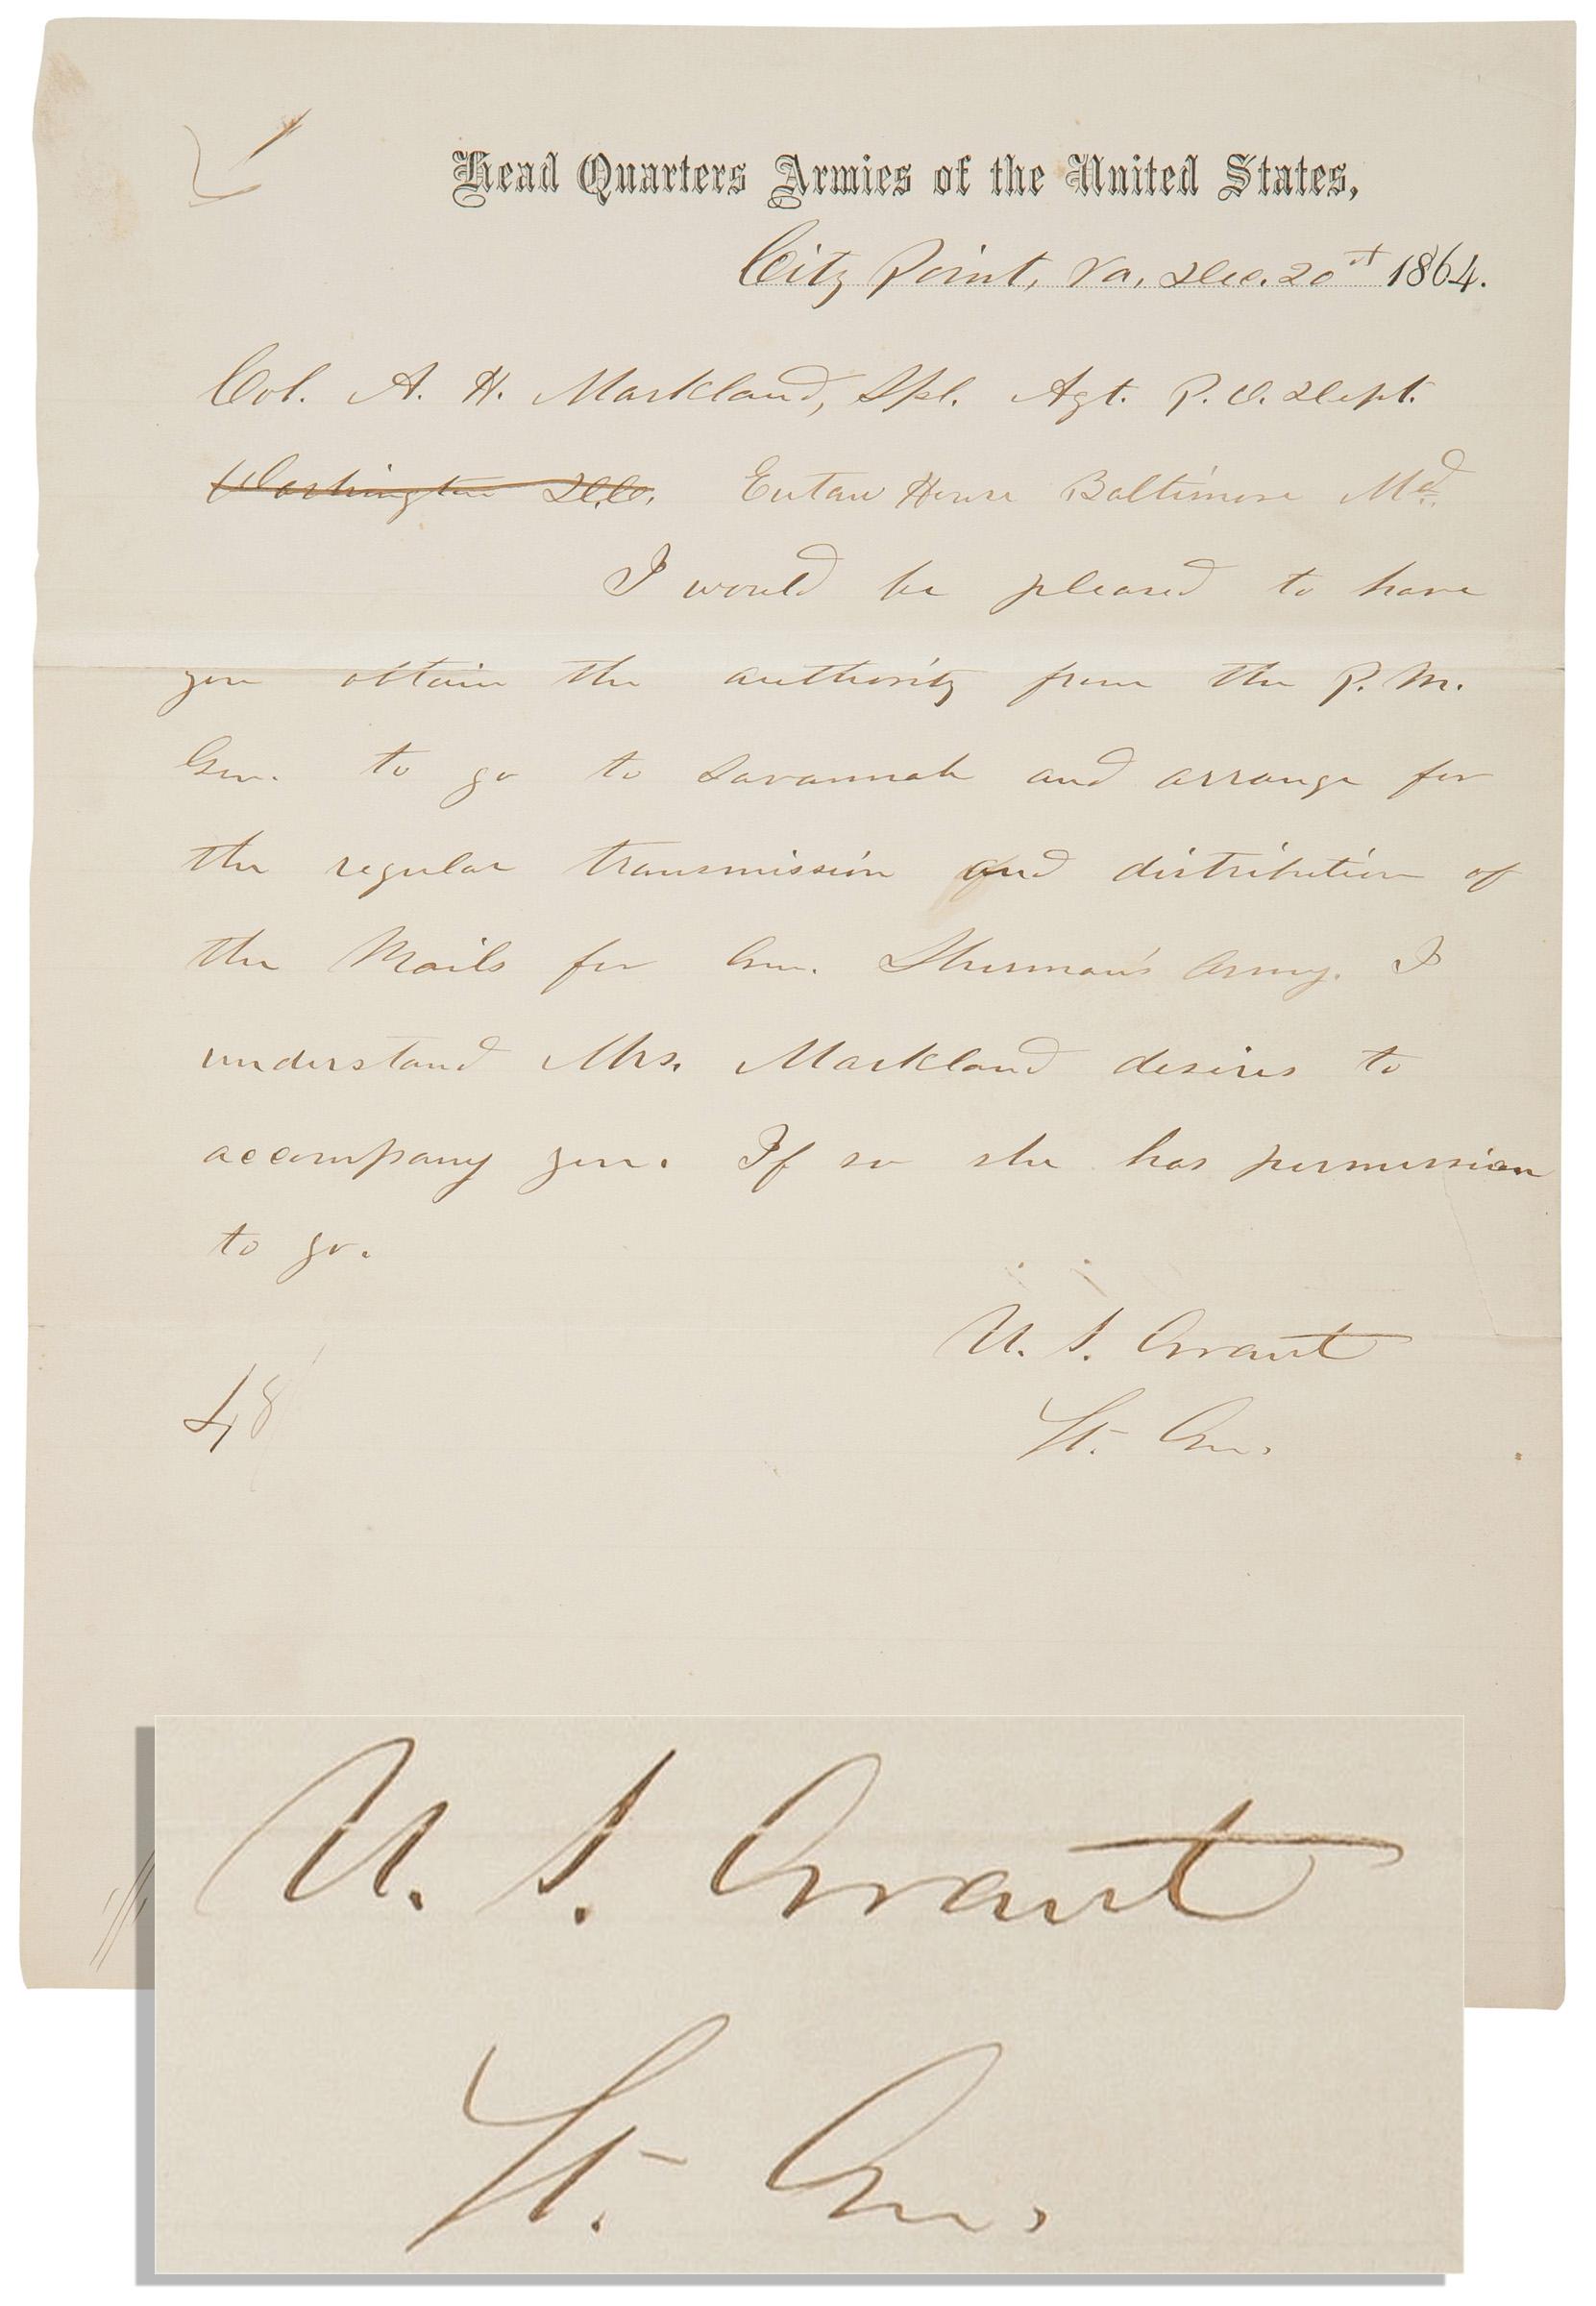 Head Quarters Armies of the United States,
City Point, Va, Dec. 20th 1864.
Col. A. H. Markland, Spl. Agt. P. O. Dept.
Washington D.C. Eutaw House Baltimore Md.
I would be pleased to have
you obtain the authority from the P. M.
Gen. to go to Savannah and arrange for
the regular transmission and distribution of
the Mails for Gen. Sherman's Army. I
understand Mrs. Markland desires to
accompany you. If so she has permission
to go.
U. S. Grant
Lt. Gen.
48
U. S. Grant
Lt. Gen.